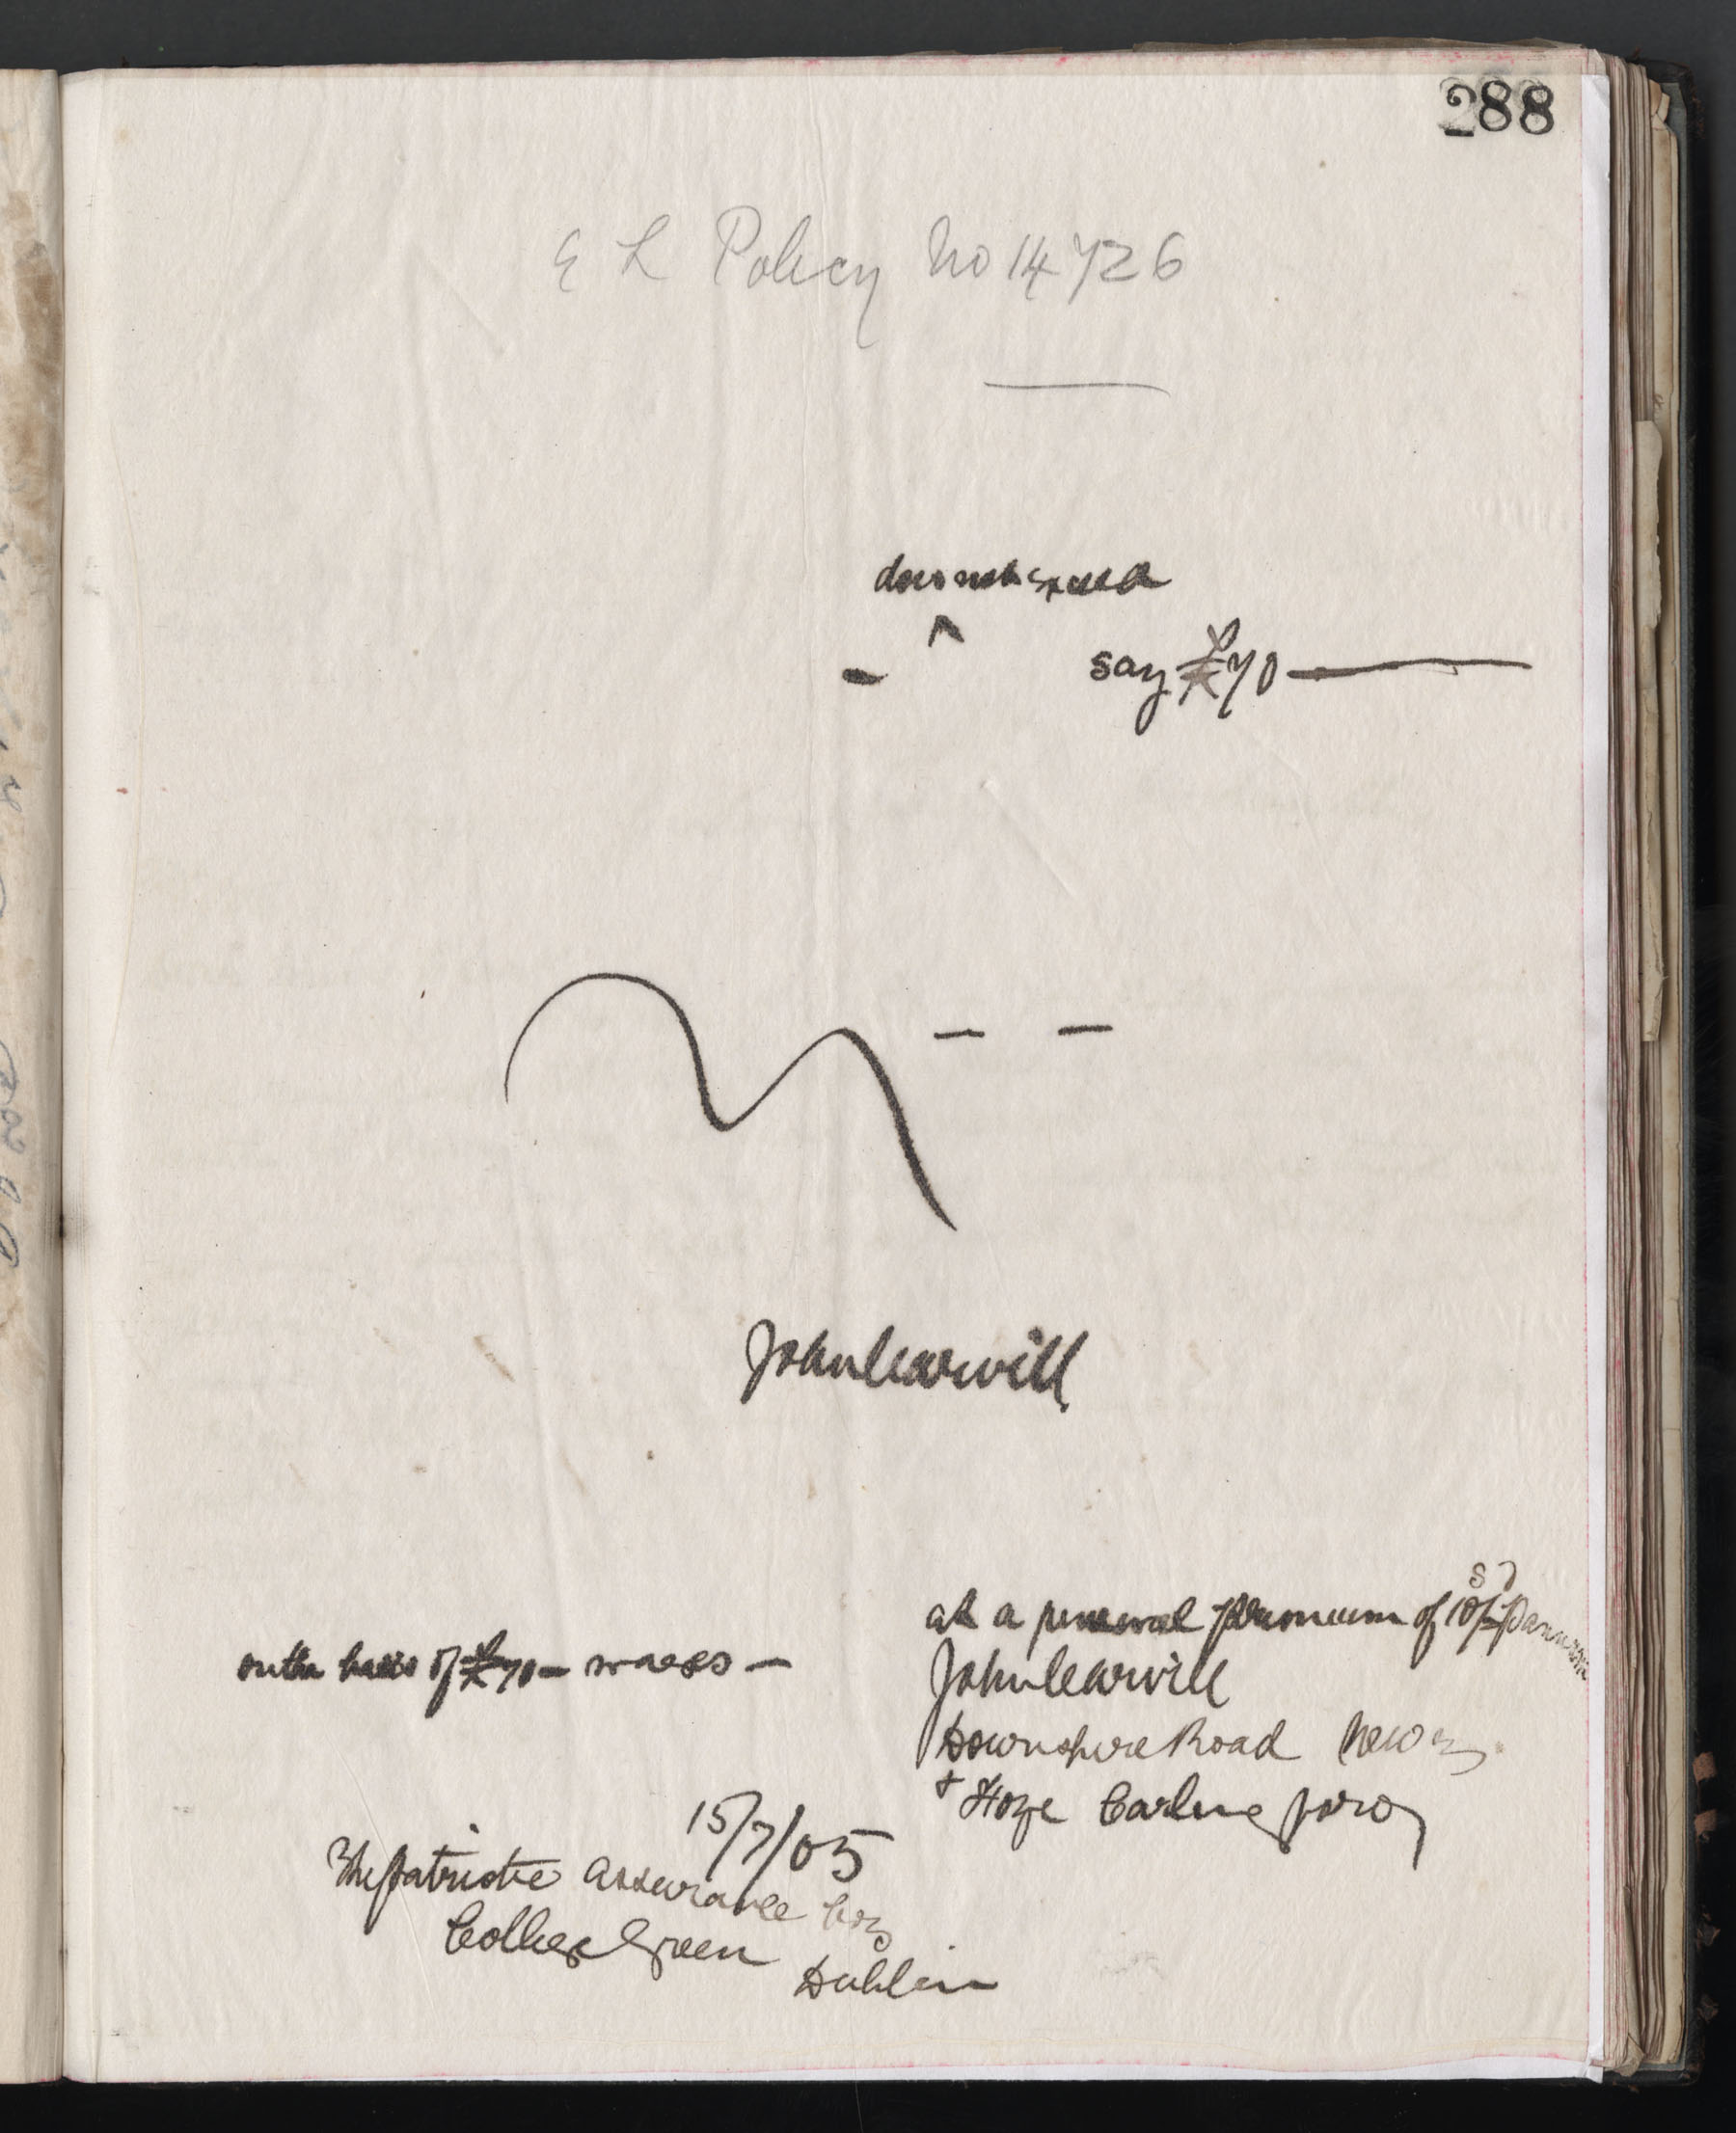 288
E L Policy No 14726
does not exceed a
say £70
John Carvill
at a renewal premium of 10/- P annum
on the basis of £70 - wages -
John Carvill
Downshire Road Newry
+ Hoze Carlingford
15/7/05
The patriotic assurance Coy
College Green
Dublin